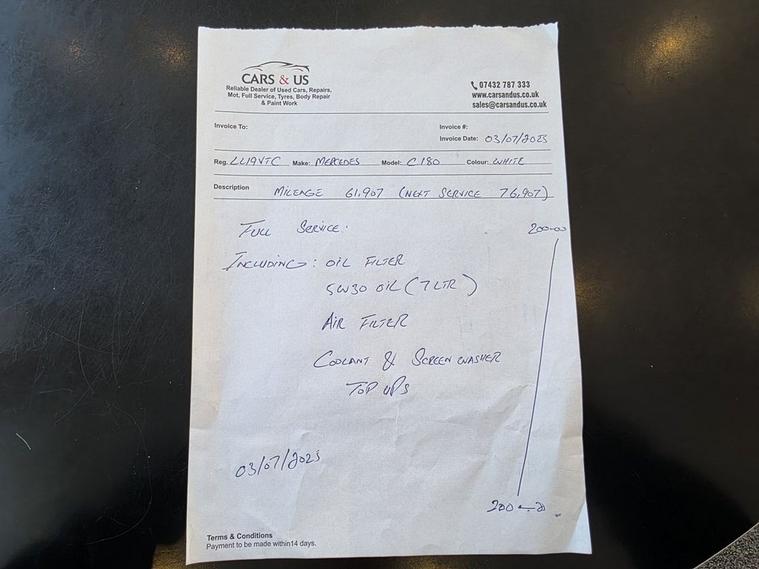 CARS & US
Reliable Dealer of Used Cars, Repairs,
Mot, Full Service, Tyres, Body Repair
& Paint Work
07432 787 333
www.carsandus.co.uk
sales@carsandus.co.uk
Invoice To:
Invoice #:
Invoice Date: 03/07/2025
Reg. LL19VTC Make: MERCEDES Model: C180 Colour: WHITE
Description MILEAGE 61,907 (NEXT SERVICE 76,907)
FULL SERVICE: 200-00
INCLUDING: OIL FILTER
5W30 OIL (7 LTR)
AIR FILTER
COOLANT & SCREEN WASHER
TOP UPS
03/07/2025
200-00
Terms & Conditions
Payment to be made within14 days.